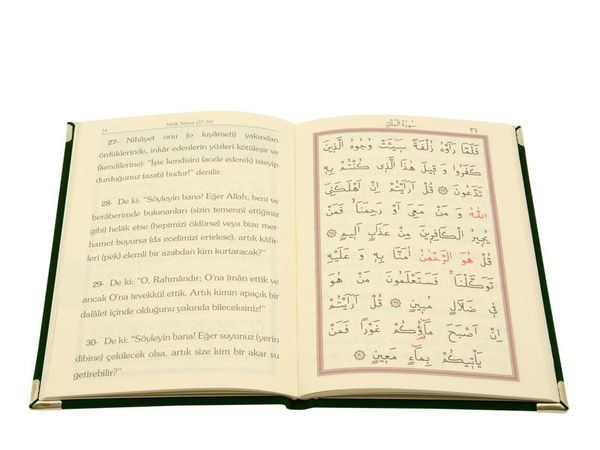 34
Mülk Sûresi (27-30)
27- Nihâyet onu (o kıyâmeti) yakından
ördüklerinde, inkâr edenlerin yüzleri kötüleşir ve
(kendilerine): "İşte kendisini (acele ederek) isteyip
durduğunuz (azab) budur!" denilir.
28- De ki: "Söyleyin bana! Eğer Allah, beni ve
berâberimde bulunanları (sizin temennî ettiğiniz
gibi) helâk etse (hepimizi öldürse) veya bize mer-
hamet buyursa (da ecelimizi ertelese), artık kâfir-
leri (pek) elemli bir azabdan kim kurtaracak?"
29- De ki: "O, Rahmândır; O'na îmân ettik ve
ancak O'na tevekkül ettik. Artık kimin apaçık bir
dalâlet içinde olduğunu yakında bileceksiniz!"
30- De ki: "Söyleyin bana! Eğer suyunuz (yerin
dibine) çekilecek olsa, artık size kim bir akar su
getirebilir?"
سُورَةُ الْمُلْكِ
٣٤
فَلَمَّا رَاَوْهُ زُلْفَةً سٓيـَٔتْ وُجُوهُ الَّذ۪ينَ
كَفَرُوا وَ ق۪يلَ هٰذَا الَّذ۪ي كُنْتُمْ بِه۪
تَدَّعُونَ ۝ قُلْ اَرَاَيْتُمْ اِنْ اَهْلَكَنِيَ
اللّٰهُ وَ مَنْ مَعِيَ اَوْ رَحِمَنَاۙ فَمَنْ
يُج۪يرُ الْكَافِر۪ينَ مِنْ عَذَابٍ اَل۪يمٍ ۝
قُلْ هُوَ الرَّحْمٰنُ اٰمَنَّا بِه۪ وَ عَلَيْهِ
تَوَكَّلْنَاۚ فَسَتَعْلَمُونَ مَنْ هُوَ
ف۪ي ضَلَالٍ مُب۪ينٍ ۝ قُلْ اَرَاَيْتُمْ
اِنْ اَصْبَحَ مَٓاؤُكُمْ غَوْرًا فَمَنْ
يَأْت۪يكُمْ بِمَٓاءٍ مَع۪ينٍ ۝